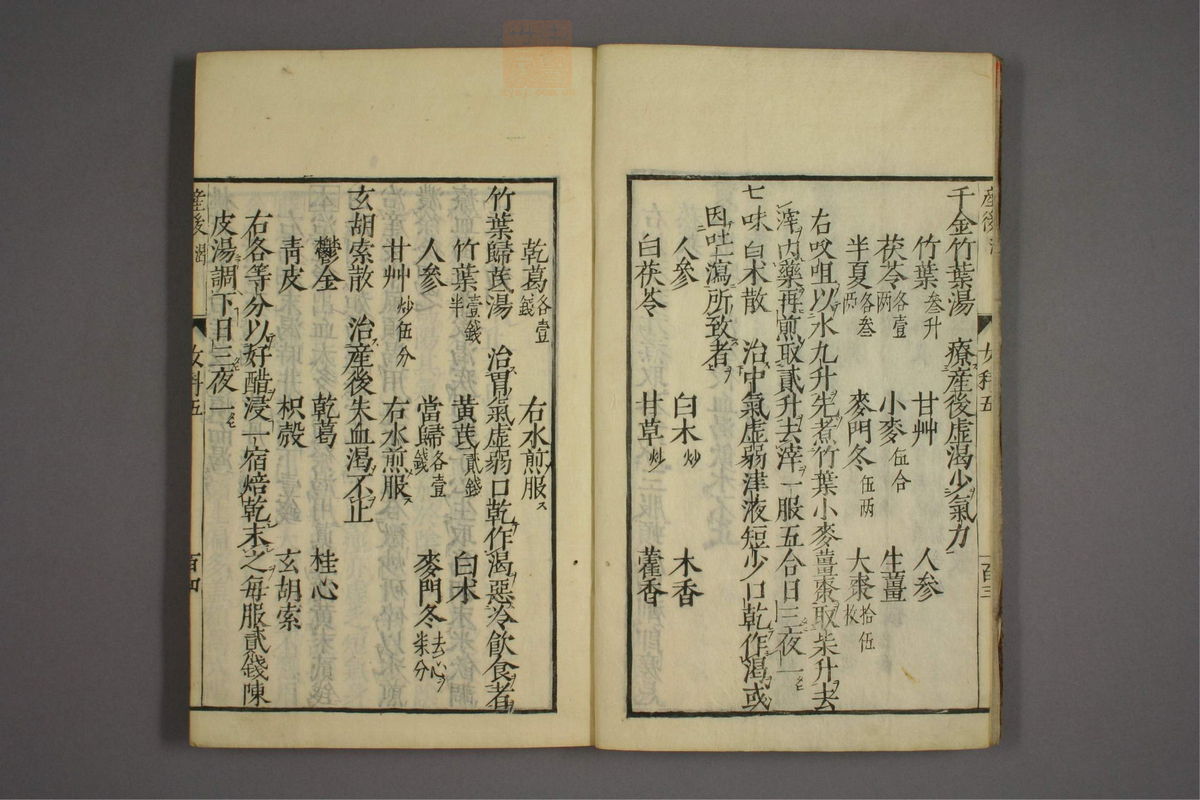 千金竹葉湯　療産後虛渇少氣力
竹葉叁升　甘艸　人參
茯苓各壹兩　小麥伍合　生薑
半夏各叁兩　麥門冬伍兩　大棗拾伍枚
右㕮咀以水九升先煮竹葉小麥薑棗取柒升去
滓内藥再煎取貳升去滓一服五合日三夜一
七味白朮散　治中氣虛弱津液短少口乾作渇或
因吐瀉所致者
人參　白朮炒　木香
白茯苓　甘草炒　藿香
乾葛各壹錢　右水煎服
竹葉歸茋湯　治胃氣虛弱口乾作渇惡冷飲食者
竹葉壹錢半　黃茋貳錢　白朮
人參　當歸各壹錢　麥門冬去心柒分
甘艸炒伍分　右水煎服
玄胡索散　治産後失血渇不止
鬱金　乾葛　桂心
靑皮　枳殼　玄胡索
右各等分以好醋浸一宿焙乾末之每服貳錢陳
皮湯調下日三夜一
産後　渇　女科五　百四